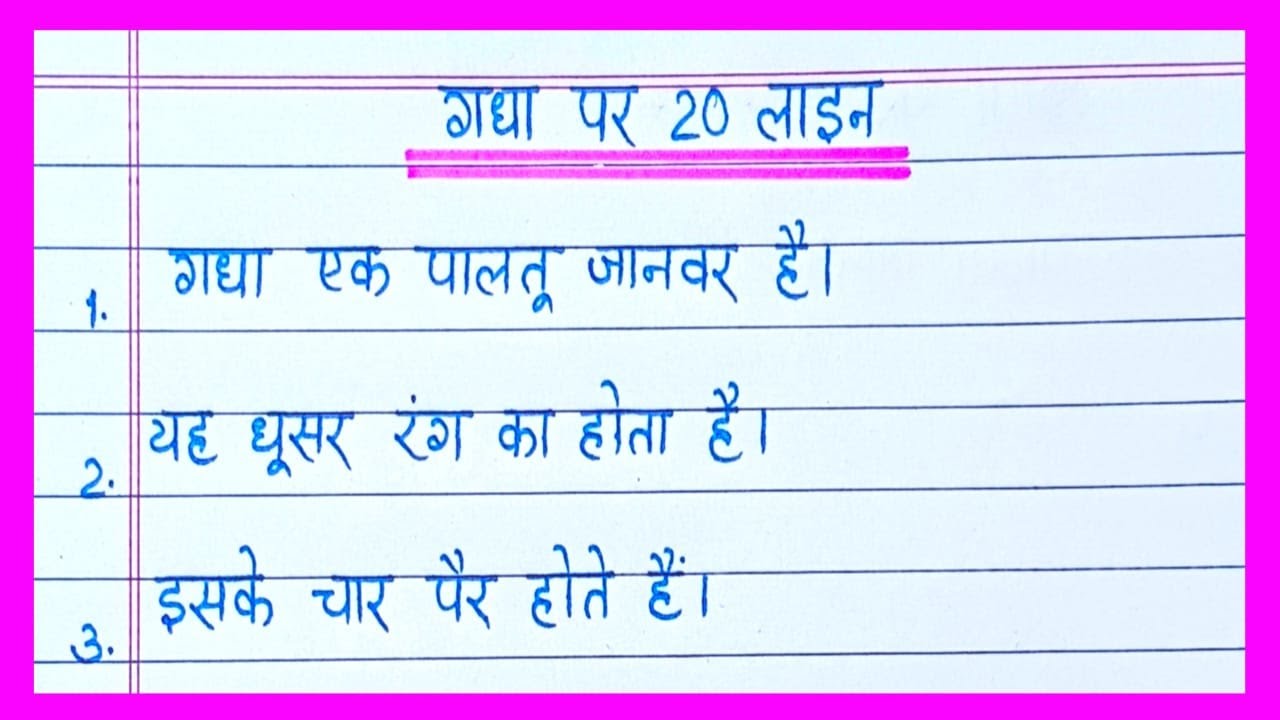 गधा पर 20 लाइन
1. गधा एक पालतू जानवर है।
2. यह धूसर रंग का होता है।
3. इसके चार पैर होते हैं।